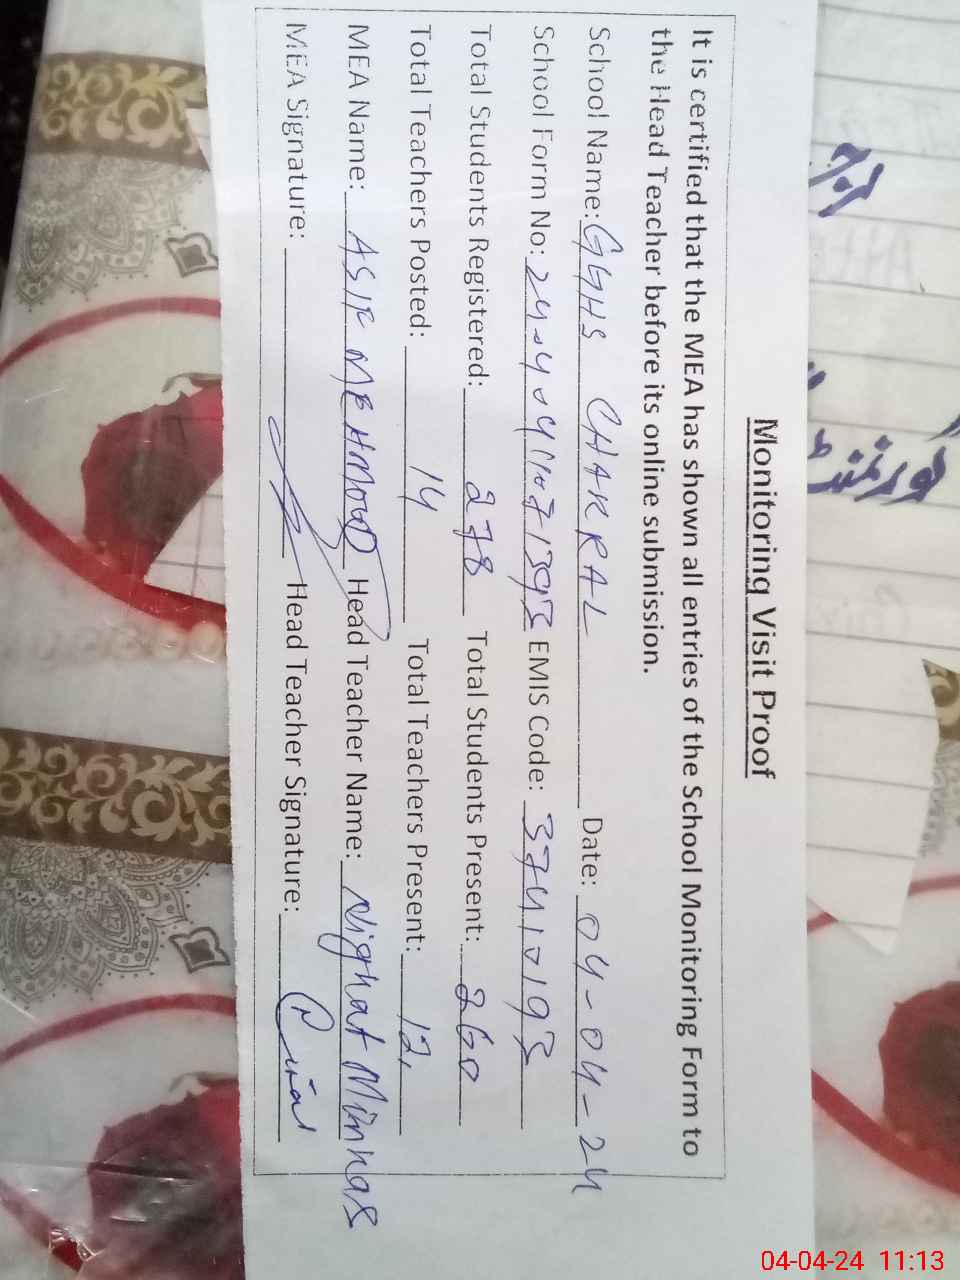 Monitoring Visit Proof
It is certified that the MEA has shown all entries of the School Monitoring Form to
the Head Teacher before its online submission.
School Name: GGHS CHAKRAL Date: 04-04-24
School Form No: EMIS Code: 37410193
Total Students Registered: 278 Total Students Present: 260
Total Teachers Posted: 14 Total Teachers Present: 12
MEA Name: ASIF MEHMOOD Head Teacher Name: Nighat Minhas
MEA Signature: Head Teacher Signature:
گورنمنٹ
04-04-24 11:13